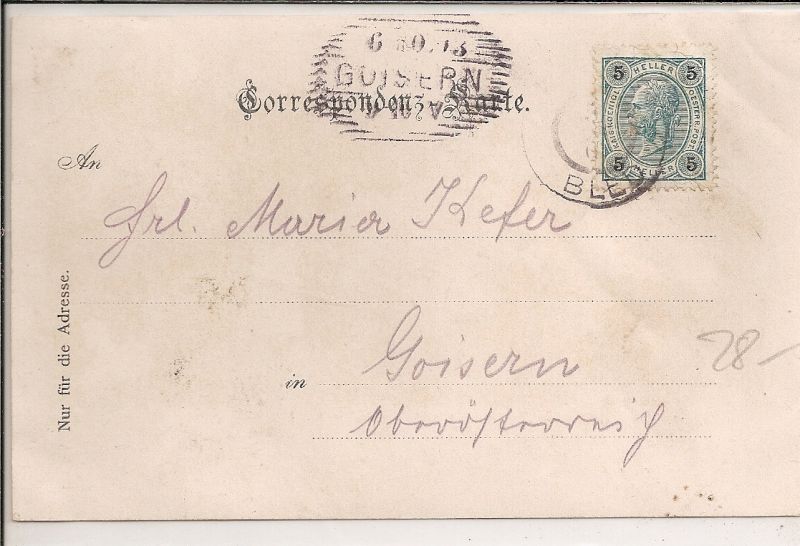 6 10. 13
GOISERN
Correspondenz-Karte.
5 HELLER 5
KAIS. KOENIGL. OESTERR. POST
5 HELLER 5
BLE
An
Frl. Marier Kefer
Nur für die Adresse.
in Goisern
Oberösterreich
28-